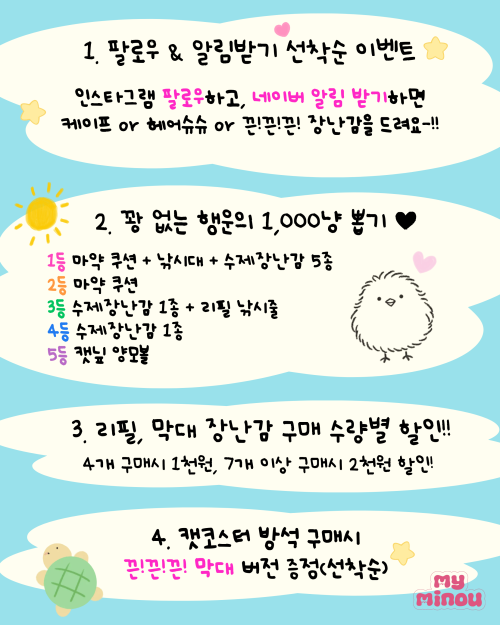 1. 팔로우 & 알림받기 선착순 이벤트
인스타그램 팔로우하고, 네이버 알림 받기하면
케이프 or 헤어슈슈 or 끈!끈!끈! 장난감을 드려요~!!
2. 꽝 없는 행운의 1,000냥 뽑기 ♥
1등 마약 쿠션 + 낚시대 + 수제장난감 5종
2등 마약 쿠션
3등 수제장난감 1종 + 리필 낚시줄
4등 수제장난감 1종
5등 캣닢 양모볼
3. 리필, 막대 장난감 구매 수량별 할인!!
4개 구매시 1천원, 7개 이상 구매시 2천원 할인!
4. 캣코스터 방석 구매시
끈!끈!끈! 막대 버전 증정(선착순)
my
minou